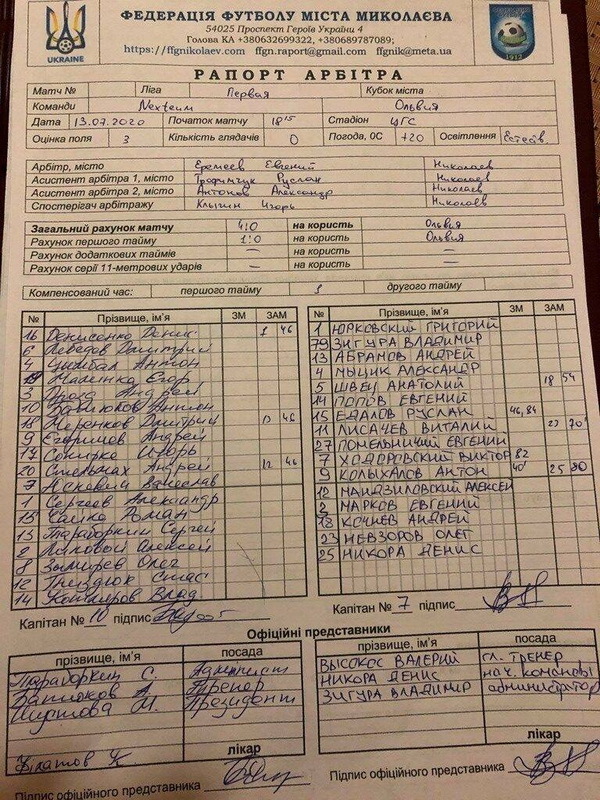 UKRAINE
ФЕДЕРАЦІЯ ФУТБОЛУ МІСТА МИКОЛАЄВА
54025 Проспект Героїв України 4
Голова КЛ +380632699322, +380689787089;
https://ffgnikolaev.com ffgn.raport@gmail.com ffgnik@meta.ua
РАПОРТ АРБІТРА
Матч № Ліга Первая Кубок міста
Команди Nexteum Ольвия
Дата 13.07.2020 Початок матчу 18 15 Стадіон ЦГС
Оцінка поля 3 Кількість глядачів 0 Погода, 0С +20 Освітлення Естеств.
Арбітр, місто Еремеев Евгений Николаев
Асистент арбітра 1, місто Трофимчук Руслан Николаев
Асистент арбітра 2, місто Антонов Александр Николаев
Спостерігач арбітражу Клыгин Игорь Николаев
Загальний рахунок матчу 4:0 на користь Ольвия
Рахунок першого тайму 1:0 на користь Ольвия
Рахунок додаткових таймів — на користь —
Рахунок серії 11-метрових ударів — на користь —
Компенсований час: першого тайму 1 другого тайму
№ Прізвище, ім'я ЗМ ЗАМ
16 Денисенко Денис 1 46
6 Лебедев Дмитрий
4 Цымбал Антон
Маленко Егор
3 Андрей
10 Антон
18 Меренков Дмитрий 13 46
9 Андрей
17 Игорь
20 Стельмах Андрей 12 46
7 Вячеслав
1 Сергеев Александр
15 Чайка Роман
13 Тараборкин Сергей
2 Алексей
8 Олег
12 Стас
14 Влад.
Капітан № 10 підпис
№ Прізвище, ім'я ЗМ ЗАМ
1 ЮРКОВСКИЙ ГРИГОРИЙ
79 ЗИГУРА ВЛАДИМИР
13 АБРАМОВ АНДРЕЙ
4 МЫЦИК АЛЕКСАНДР
5 ШВЕЦ АНАТОЛИЙ 18 54
14 ПОПОВ ЕВГЕНИЙ
15 ЕДАЛОВ РУСЛАН 46, 84
11 ЛИСАЧЕВ ВИТАЛИЙ 23 70
27 ПОМЕЛЬНИЧИЙ ЕВГЕНИЙ
7 ХОДОРОВСКИЙ ВИКТОР 82
9 КОЛЫХАЛОВ АНТОН 40 25 80
12 МАНДЗИЛОВСКИЙ АЛЕКСЕЙ
2 МАРКОВ ЕВГЕНИЙ
18 КОЧНЕВ АНДРЕЙ
23 НЕВЗОРОВ ОЛЕГ
25 НИКОРА ДЕНИС
Капітан № 7 підпис
Офіційні представники
прізвище, ім'я посада
Тараборкин С.
А. Тренер
М. Президент
лікар
Філатов К
Підпис офіційного представника
прізвище, ім'я посада
ВЫСОКОС ВАЛЕРИЙ гл. тренер
НИКОРА ДЕНИС нач. команды
ЗИГУРА ВЛАДИМИР администратор
лікар
Підпис офіційного представника